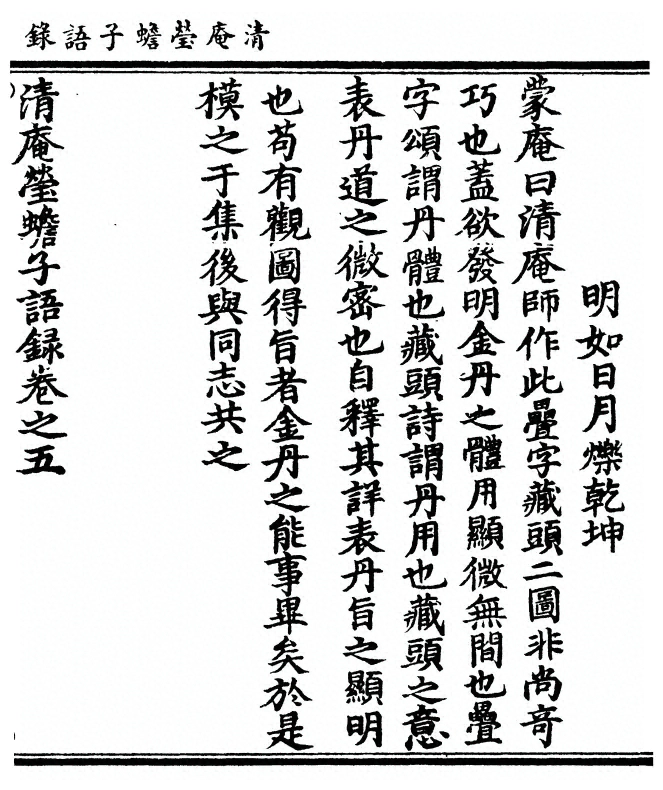 清庵瑩蟾子語錄
明如日月爍乾坤
蒙庵曰清庵師作此疊字藏頭二圖非尚竒
巧也蓋欲發明金丹之體用顯微無間也疊
字頌謂丹體也藏頭詩謂丹用也藏頭之意
表丹道之微密也自釋其詳表丹旨之顯明
也苟有觀圖得旨者金丹之能事畢矣於是
模之于集後與同志共之
清庵瑩蟾子語録卷之五